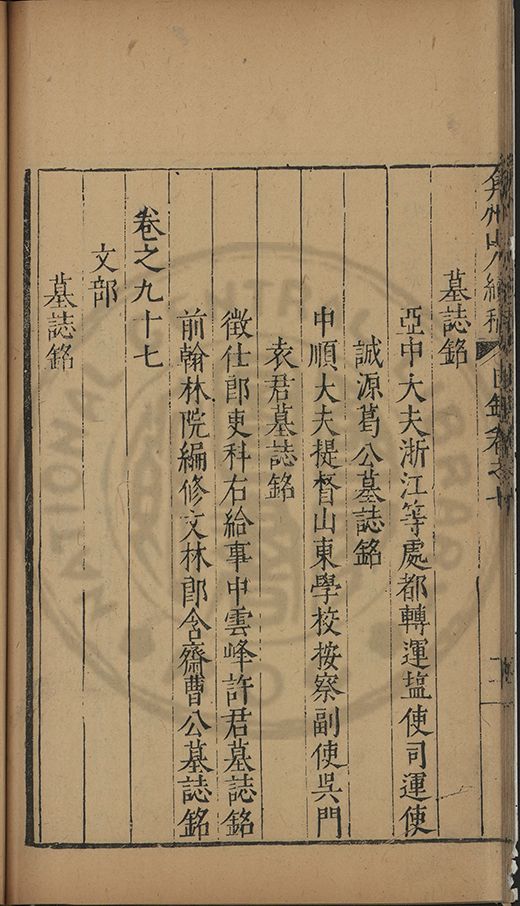 弇州山人續稿 目錄卷之十
墓誌銘
亞中大夫浙江等處都轉運塩使司運使
誠源葛公墓誌銘
中順大夫提督山東學校按察副使吳門
袁君墓誌銘
徵仕郎吏科右給事中雲峰許君墓誌銘
前翰林院編修文林郎含齋曹公墓誌銘
卷之九十七
文部
墓誌銘